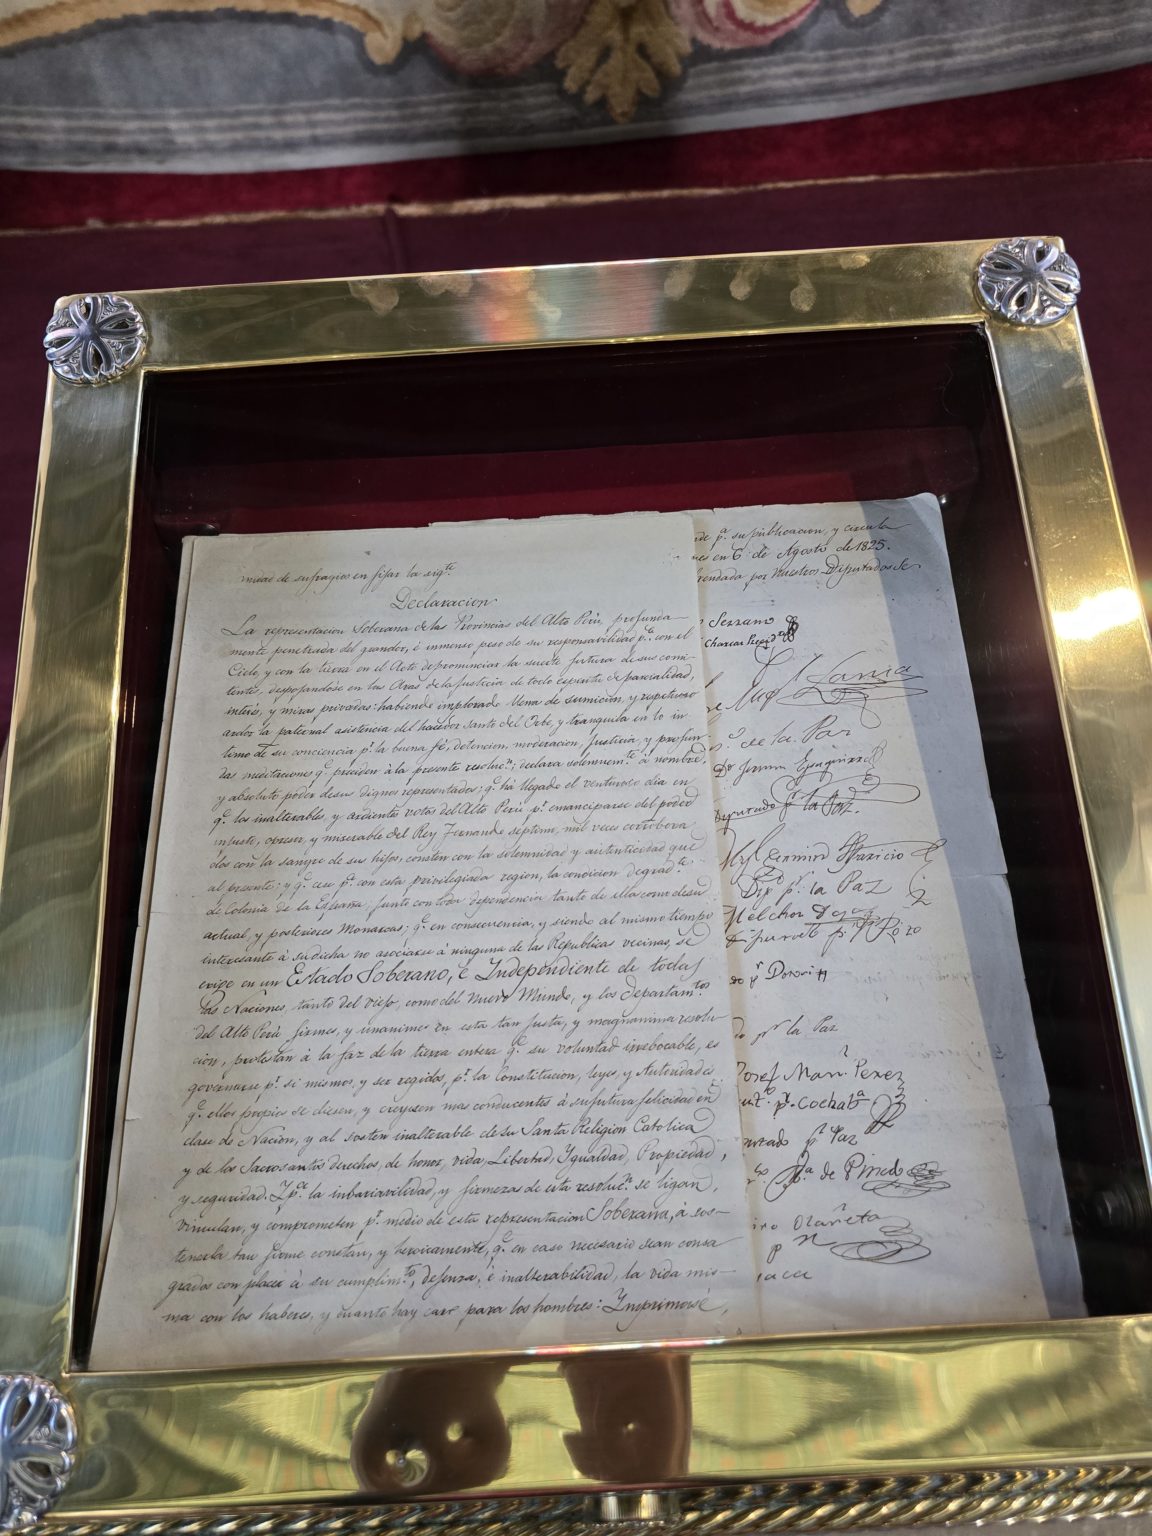 midad de sufragios en fijar la sigte.
Declaracion
La representacion Soberana de las Provincias del Alto Perú, profunda-
mente penetrada del grandor, é inmenso peso de su responsavilidad pa. con el
Cielo, y con la tierra en el Acto de pronunciar la suerte futura de sus comi-
tentes, despojandose en las Aras de la Justicia de todo espiritu de parcialidad,
interés, y miras privadas: habiendo implorado llena de sumicion, y respetuoso
ardor la paternal asistencia del hacedor Santo del Orbe, y tranquila en lo in
timo de su conciencia pr. la buena fé, detencion, moderacion, Justicia, y profun-
das meditaciones qe. preciden á la presente resolucn; declara solemnemte. á nombre,
y absoluto poder de sus dignos representados; qe. há llegado el venturoso dia en
qe. los inalterables, y ardientes votos del Alto Perú pr. emanciparse del poder
injusto, opresor, y miserable del Rey Fernando septimo, mil veces corrobora
dos con la sangre de sus hijos, consten con la solemnidad y autenticidad que
al presente; y qe. cese pa. con esta privilegiada region, la condicion degradte.
de Colonia de la España, junto con toda dependencia tanto de ella como de su
actual, y posterieres Monarcas; qe. en consecuencia, y siendo al mismo tiempo
interesante á su dicha no asociarse á ninguna de las Republicas vecinas, se
erige en un Estado Soberano, é Independiente de todas
las Naciones, tanto del viejo, como del nuevo Mundo, y los departamtos.
del Alto Perú firmes, y unanimes en esta tan justa, y magnanima resolu-
cion, protestan á la faz de la tierra entera qe. su voluntad irrebocable, es
governarse pr. si mismos, y ser regidos, pr. la Constitucion, leyes, y Autoridades
qe. ellos propios se diesen, y creyesen mas conducentes á su futura felicidad en
clase de Nacion, y al sosten inalterable de su Santa Religion Catolica
y de los Sacrosantos derechos, de honor, vida, Libertad, Ygualdad, Propiedad,
y seguridad. Y pa. la inbariavilidad, y firmeza de esta resolucn. se ligan,
vinculan, y comprometen, pr. medio de esta representacion Soberana, á sos-
tenerla tan firme, constan, y heroicamente, qe. en caso necesario sean consa
grados con placer á su cumplimto., defensa, é inalterabilidad, la vida mis-
ma con los haberes, y cuanto hay caro para los hombres: Ymprimase,
pa. su publicacion, y circula
en 6 de Agosto de 1825.
por nuestros Diputados Se
Serrano
Charcas
de la Paz
Diputado pr. la Paz.
Dip pr. la Paz
Melchor
pr. la Paz
Josef Man. Perez
pr. Cochaba
pr. Paz
Olañeta